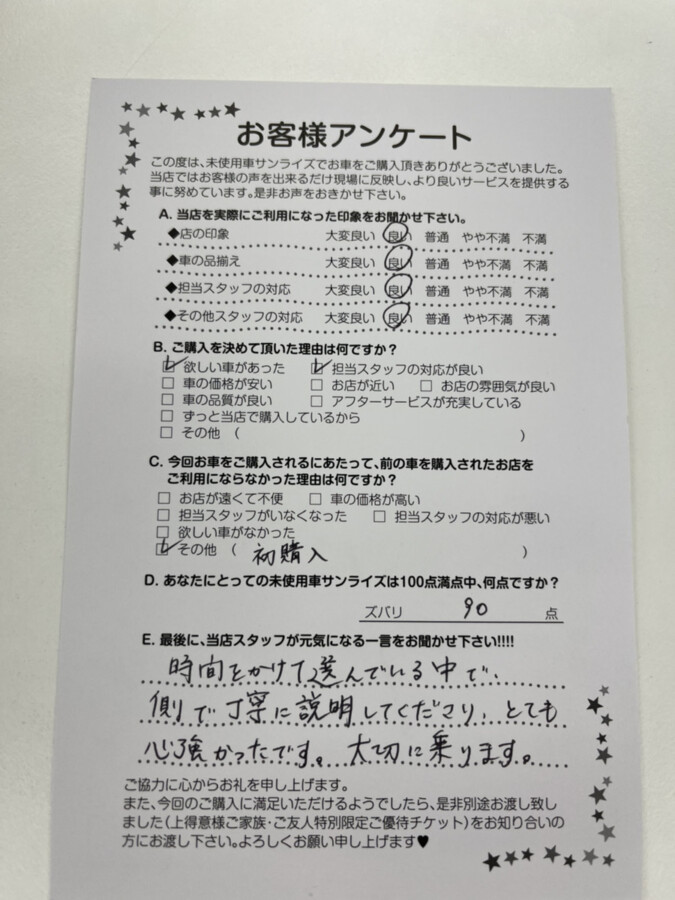 お客様アンケート
この度は、未使用車サンライズでお車をご購入頂きありがとうございました。
当店ではお客様の声を出来るだけ現場に反映し、より良いサービスを提供する
事に努めています。是非お声をおきかせ下さい。
A. 当店を実際にご利用になった印象をお聞かせ下さい。
◆店の印象 大変良い 良い 普通 やや不満 不満
◆車の品揃え 大変良い 良い 普通 やや不満 不満
◆担当スタッフの対応 大変良い 良い 普通 やや不満 不満
◆その他スタッフの対応 大変良い 良い 普通 やや不満 不満
B. ご購入を決めて頂いた理由は何ですか？
☑ 欲しい車があった ☑ 担当スタッフの対応が良い
□ 車の価格が安い □ お店が近い □ お店の雰囲気が良い
□ 車の品質が良い □ アフターサービスが充実している
□ ずっと当店で購入しているから
□ その他 （ ）
C. 今回お車をご購入されるにあたって、前の車を購入されたお店を
ご利用にならなかった理由は何ですか？
□ お店が遠くて不便 □ 車の価格が高い
□ 担当スタッフがいなくなった □ 担当スタッフの対応が悪い
□ 欲しい車がなかった
☑ その他 （ 初購入 ）
D. あなたにとっての未使用車サンライズは100点満点中、何点ですか？
ズバリ 90 点
E. 最後に、当店スタッフが元気になる一言をお聞かせ下さい!!!!
時間をかけて選んでいる中で、
側で丁寧に説明してくださり、とても
心強かったです。大切に乗ります。
ご協力に心からお礼を申し上げます。
また、今回のご購入に満足いただけるようでしたら、是非別途お渡し致し
ました（上得意様ご家族・ご友人特別限定ご優待チケット）をお知り合いの
方にお渡し下さい。よろしくお願い申し上げます♥